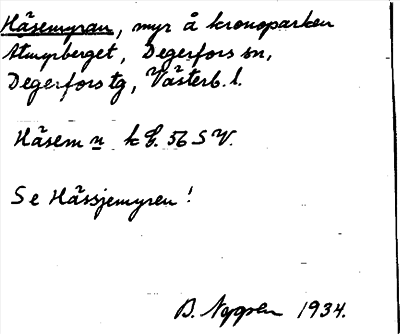 Häsemyran, myr å kronoparken
Åtmyrberget, Degerfors sn,
Degerfors tg, Västerb. l.
Häsem n k E. 56 S V.
Se Hässjemyren!
B. Nygren 1934.